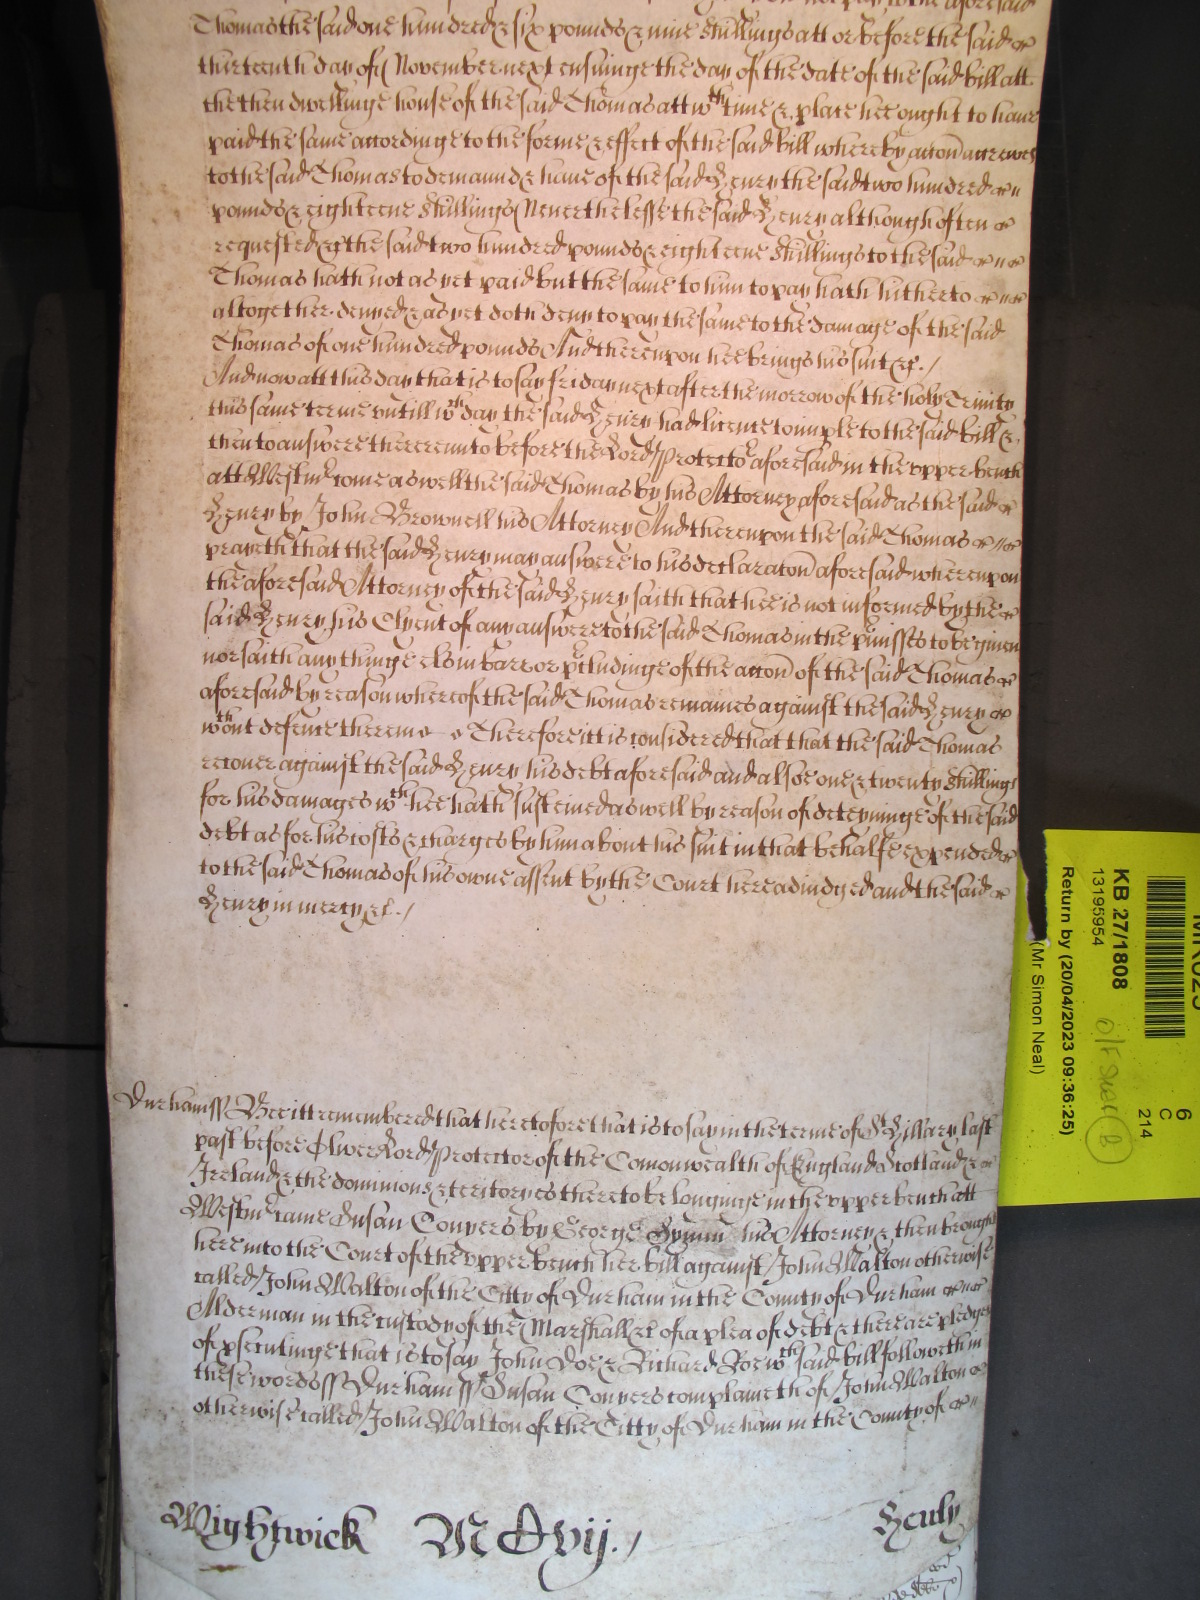 not pay to the aforesaid
Thomas the said one hundred & six pounds & nine shillings att or before the said
thirteenth day of November next ensuinge the day of the date of the said bill att
the then dwellinge house of the said Thomas att wch time & place hee ought to have
paid the same accordinge to the forme & effect of the said bill whereby accon accrewed
to the said Thomas to demaund & have of the said Henry the said two hundred
pounds & eighteene shillings Neverthelesse the said Henry although often
requested &c the said two hundred pounds & eighteene shillings to the said
Thomas hath not as yet paid but the same to him to pay hath hitherto
altogether denyed & as yet doth deny to pay the same to the damage of the said
Thomas of one hundred pounds And thereupon hee brings his suit &c./
And now att this day that is to say friday next after the morrow of the holy Trinity
this same terme untill wch day the said Henry had licence to imple to the said bill &
then to answere thereunto before the Lord Protector aforesaid in the upper bench
att Westmr come aswell the said Thomas by his Attorney aforesaid as the said
Henry by John Brownell his Attorney And thereupon the said Thomas
prayeth that the said Henry may answere to his declaracon aforesaid whereupon
the aforesaid Attorney of the said Henry saith that hee is not informed by the
said Henry his Clyent of any answere to the said Thomas in the pmisses to be given
nor saith any thinge els in barr or pcludinge of the accon of the said Thomas
aforesaid by reason whereof the said Thomas remaines against the said Henry
wthout defence therein Therefore itt is considered that that the said Thomas
recover against the said Henry his debt aforesaid and alsoe one & twenty shillings
for his damages wch hee hath susteined aswell by reason of deteyninge of the said
debt as for his costs & charges by him about his suit in that behalfe expended
to the said Thomas of his owne assent by the Court here adiudged and the said
Henry in mercy &c./
Durham ss Bee itt remembered that heretofore that is to say in the terme of St Hillary last
past before Oliver Lord Protector of the Comonwealth of England Scotland &
Ireland & the dominions & territoryes thereto belonginge in the upper bench att
Westmr came Susan Conyers by George his Attorney & then brought
here into the Court of the upper bench her bill against John Walton otherwise
called John Walton of the Citty of Durham in the County of Durham
Alderman in the custody of the Marshall &c of a plea of debt & there are pledges
of psecutinge that is to say John Doe & Richard Roe wch said bill followeth in
these words ss Durham ss Susan Conyers complaineth of John Walton
otherwise called John Walton of the Citty of Durham in the County of
Wightwick M D vij./ Henly
KB 27/1808
13195954
Return by (20/04/2023 09:36:25)
(Mr Simon Neal)
6
C
214